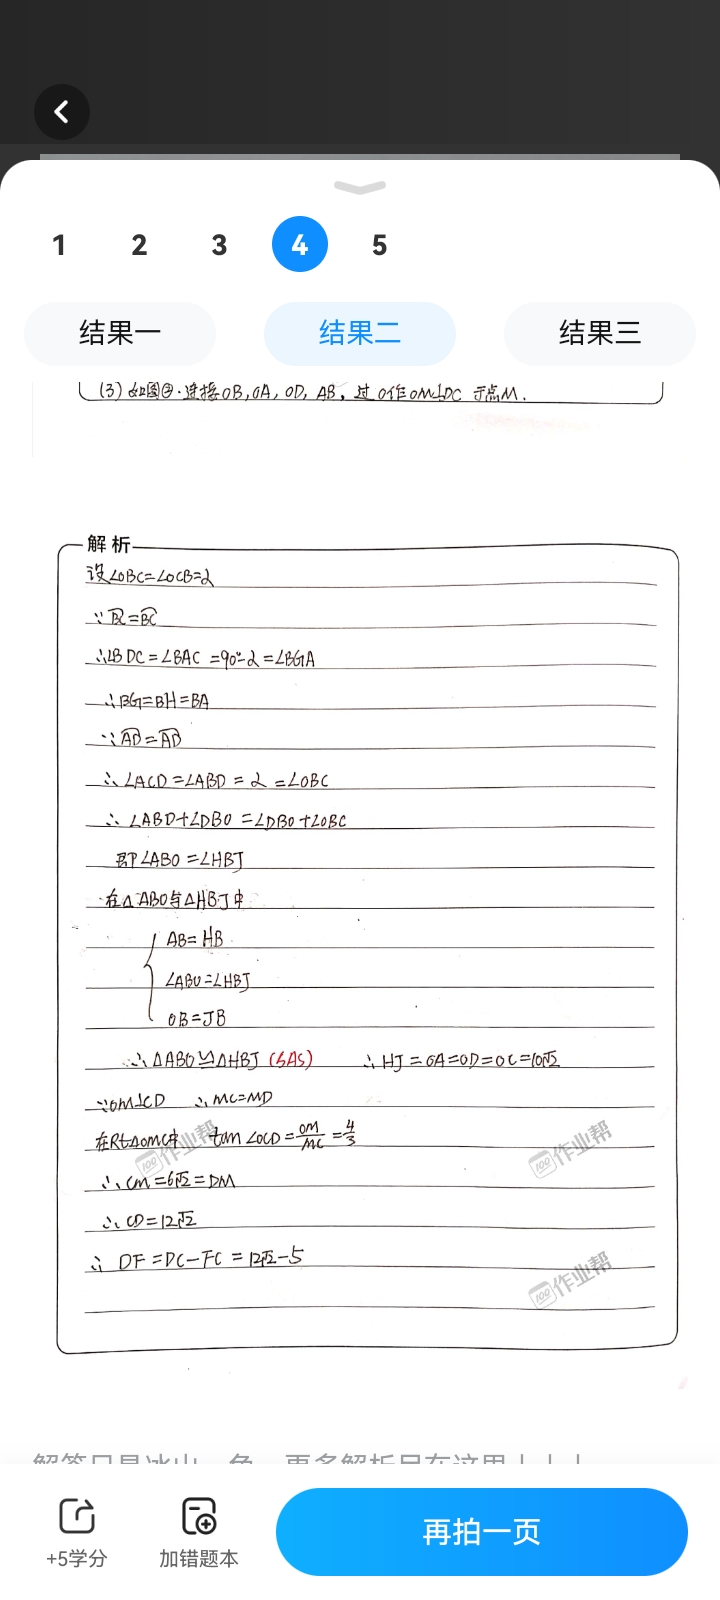 1 2 3 4 5
结果一 结果二 结果三
(3) 如图②.连接OB,OA,OD,AB,过O作OM⊥DC于点M.
解析
设∠OBC=∠OCB=α
∵BC=BC
∴∠BDC=∠BAC=90°-α=∠BGA
∴BG=BH=BA
∵AD=AD
∴∠ACD=∠ABD=α=∠OBC
∴∠ABD+∠DBO=∠DBO+∠OBC
即∠ABO=∠HBJ
在△ABO与△HBJ中
AB=HB
∠ABO=∠HBJ
OB=JB
∴△ABO≌△HBJ(SAS) ∴HJ=OA=OD=OC=10√2
∵OM⊥CD ∴MC=MD
在Rt△OMC中 tan∠OCD=OM/MC=4/3
∴CM=6√2=DM
∴CD=12√2
∴DF=DC-FC=12√2-5
作业帮
作业帮
作业帮
+5学分 加错题本 再拍一页